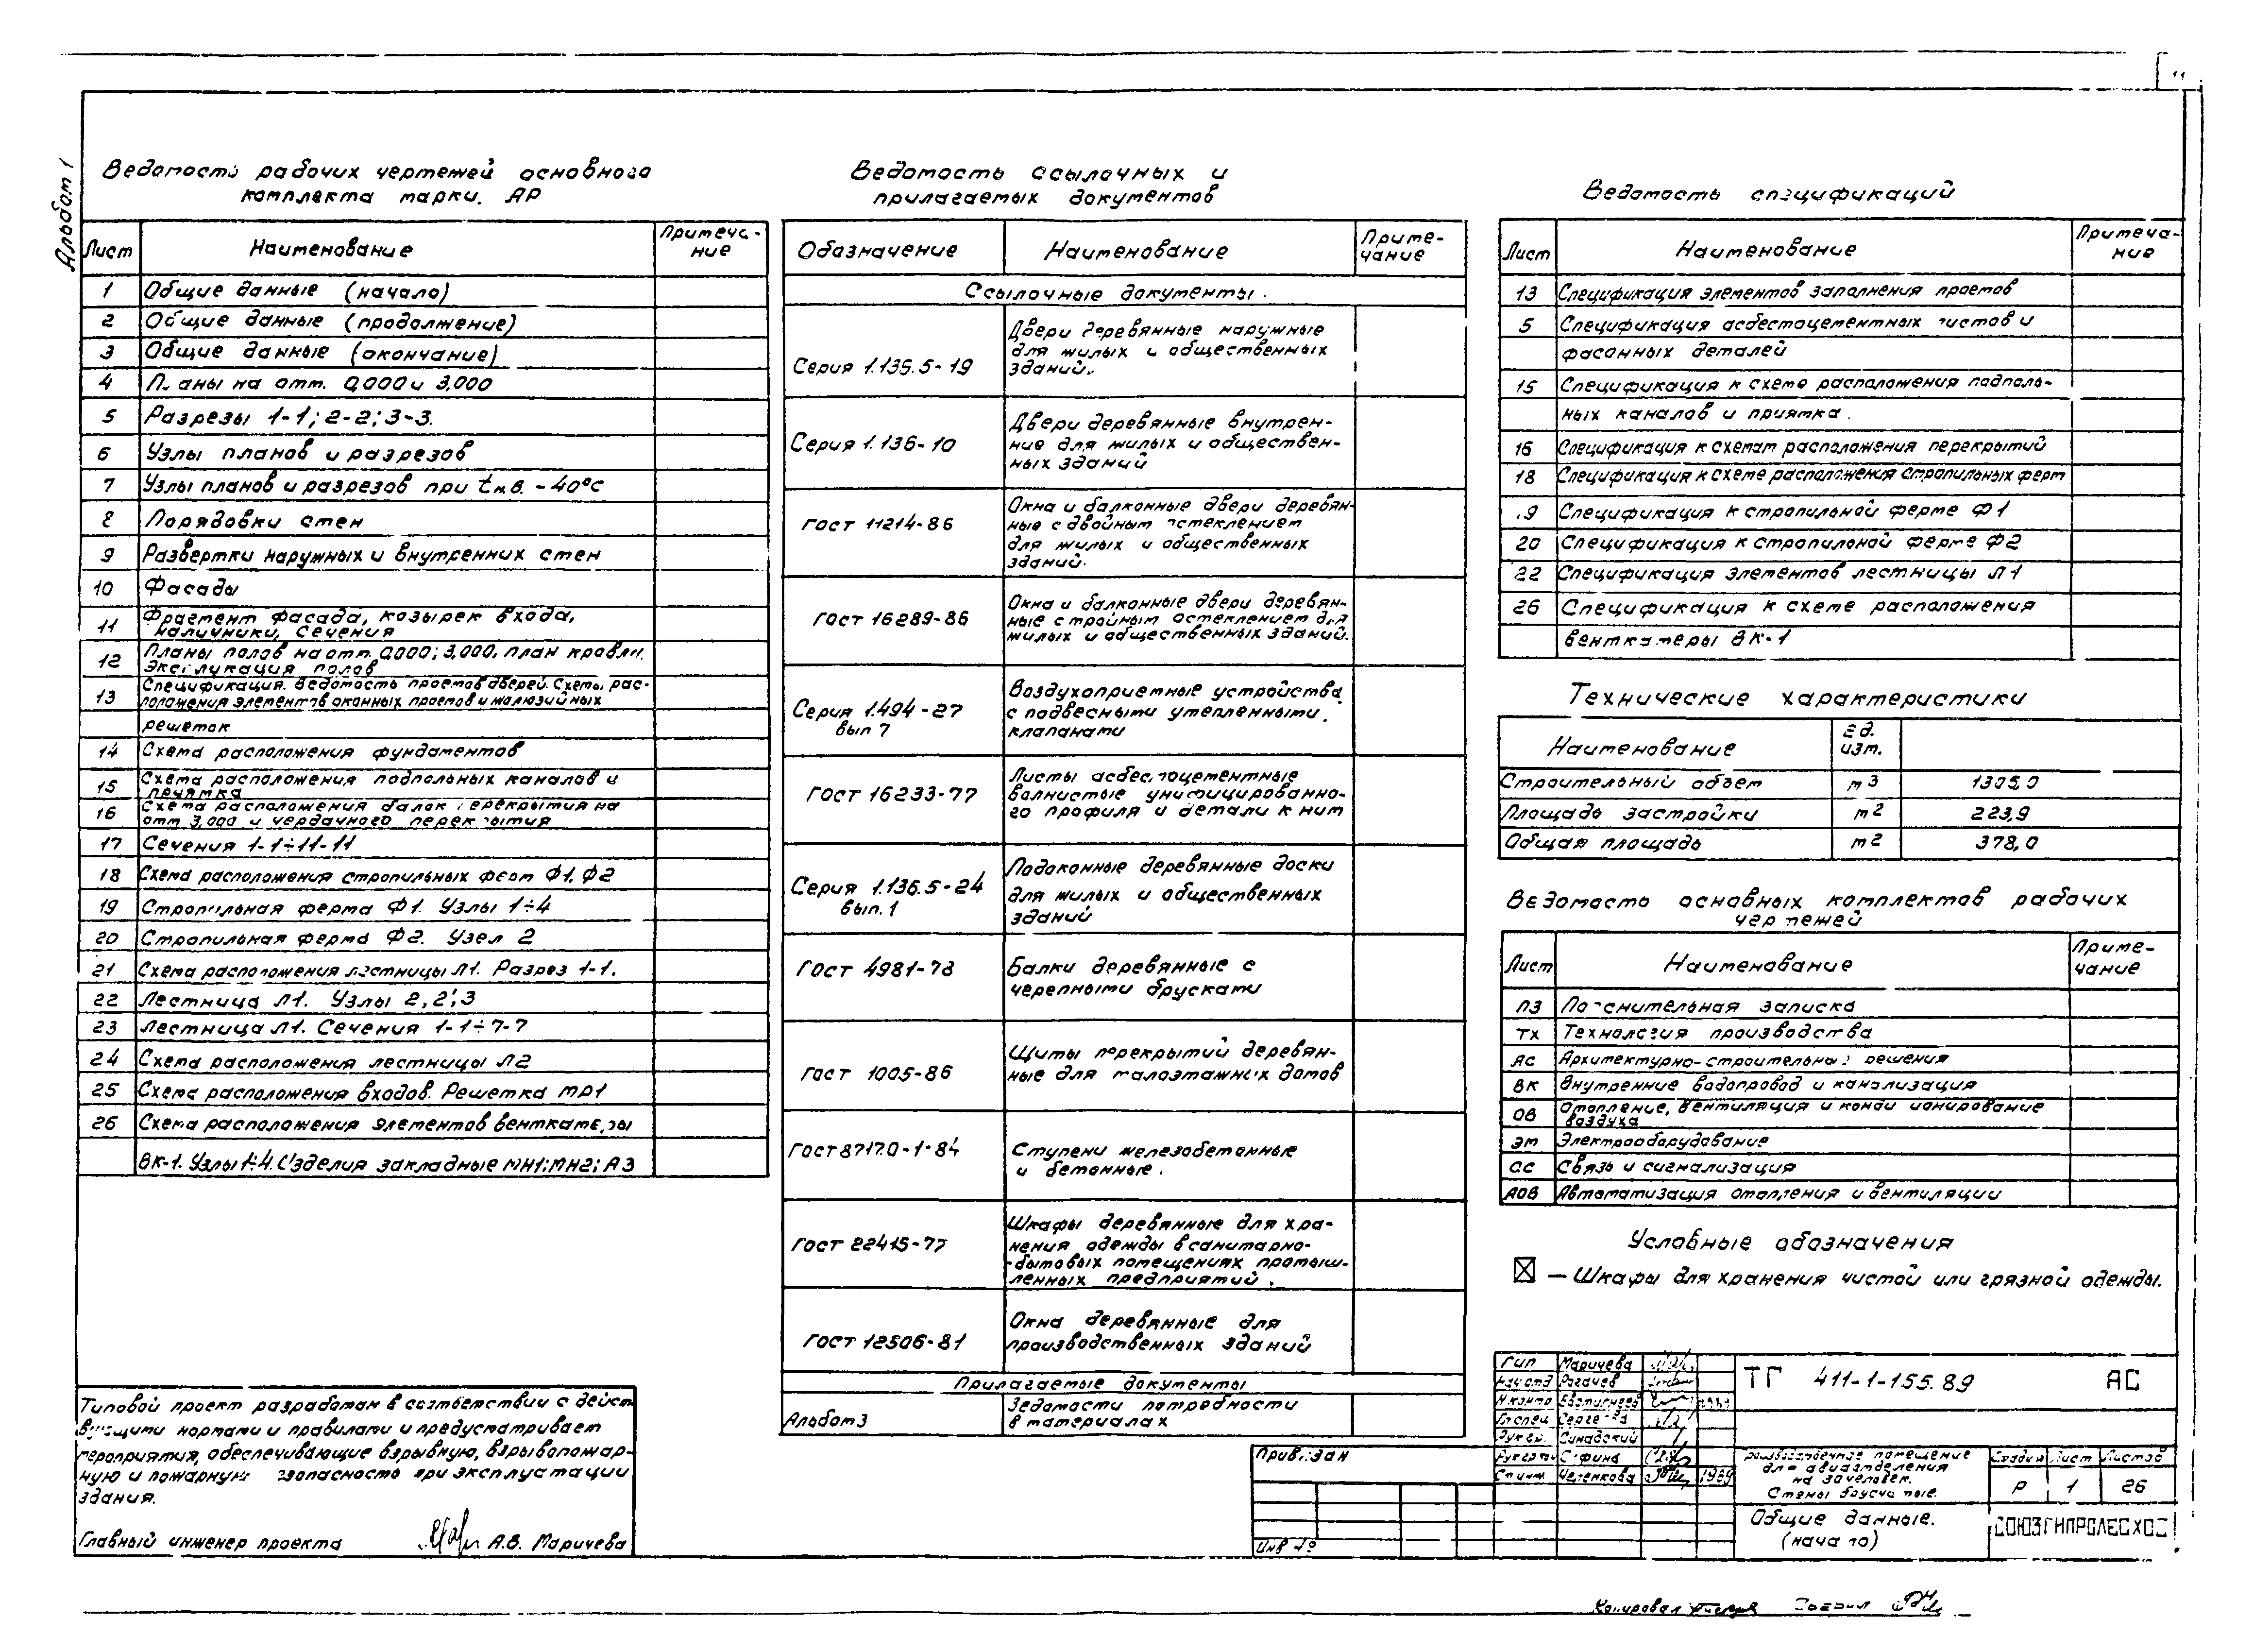 Альбом 1
Ведомость рабочих чертежей основного
комплекта марки. АР
Лист Наименование Примеча-
ние
1 Общие данные (начало)
2 Общие данные (продолжение)
3 Общие данные (окончание)
4 Планы на отм. 0,000 и 3,000
5 Разрезы 1-1; 2-2; 3-3.
6 Узлы планов и разрезов
7 Узлы планов и разрезов при tн.в. -40°С
8 Порядовки стен
9 Развертки наружных и внутренних стен
10 Фасады
11 Фрагмент фасада, козырек входа,
наличники, сечения
12 Планы полов на отм. 0,000; 3,000, план кровли.
Экспликация полов
13 Спецификация. Ведомость проемов дверей. Схемы рас-
положения элементов оконных проемов и жалюзийных
решеток
14 Схема расположения фундаментов
15 Схема расположения подпольных каналов и
приямка
16 Схема расположения балок перекрытия на
отм 3,000 и чердачного перекрытия
17 Сечения 1-1÷11-11
18 Схема расположения стропильных ферм Ф1, Ф2
19 Стропильная ферма Ф1. Узлы 1÷4
20 Стропильная ферма Ф2. Узел 2
21 Схема расположения лестницы Л1. Разрез 1-1.
22 Лестница Л1. Узлы 2, 2'; 3
23 Лестница Л1. Сечения 1-1÷7-7
24 Схема расположения лестницы Л2
25 Схема расположения входов. Решетка МР1
26 Схема расположения элементов венткамеры
ВК-1. Узлы 1÷4. Изделия закладные МН1; МН2; А3
Типовой проект разработан в соответствии с дейст
вующими нормами и правилами и предусматривает
мероприятия, обеспечивающие взрывную, взрывопожар-
ную и пожарную безопасность при эксплуатации
здания.
Главный инженер проекта А.В. Маричева
Ведомость ссылочных и
прилагаемых документов
Обозначение Наименование Приме-
чание
Ссылочные документы.
Серия 1.136.5-19 Двери деревянные наружные
для жилых и общественных
зданий.
Серия 1.136-10 Двери деревянные внутрен-
ние для жилых и обществен-
ных зданий
Гост 11214-86 Окна и балконные двери деревян-
ные с двойным остеклением
для жилых и общественных
зданий.
Гост 16289-86 Окна и балконные двери деревян-
ные с тройным остеклением для
жилых и общественных зданий.
Серия 1.494-27
вып 7 Воздухоприемные устройства
с подвесными утепленными.
клапанами
Гост 16233-77 Листы асбестоцементные
волнистые унифицированно-
го профиля и детали к ним
Серия 1.136.5-24
вып. 1 Подоконные деревянные доски
для жилых и общественных
зданий
Гост 4981-78 Балки деревянные с
черепными брусками
Гост 1005-86 Щиты перекрытий деревян-
ные для малоэтажных домов
Гост 8717.0-1-84 Ступени железобетонные
и бетонные.
Гост 22415-77 Шкафы деревянные для хра-
нения одежды в санитарно-
-бытовых помещениях промыш-
ленных предприятий.
Гост 12506-81 Окна деревянные для
производственных зданий
Прилагаемые документы
Альбом 3 Ведомости потребности
в материалах
Ведомость спецификаций
Лист Наименование Примеча-
ние
13 Спецификация элементов заполнения проемов
5 Спецификация асбестоцементных листов и
фасонных деталей
15 Спецификация к схеме расположения подполь-
ных каналов и приямка.
16 Спецификация к схемам расположения перекрытий
18 Спецификация к схеме расположения стропильных ферм
19 Спецификация к стропильной ферме Ф1
20 Спецификация к стропильной ферме Ф2
22 Спецификация элементов лестницы Л1
26 Спецификация к схеме расположения
венткамеры ВК-1
Технические характеристики
Наименование Ед.
изм.
Строительный объем м3 1305,0
Площадь застройки м2 223,9
Общая площадь м2 378,0
Ведомость основных комплектов рабочих
чертежей
Лист Наименование Приме-
чание
ПЗ Пояснительная записка
ТХ Технология производства
АС Архитектурно-строительные решения
ВК Внутренние водопровод и канализация
ОВ Отопление, вентиляция и кондиционирование
воздуха
ЭМ Электрооборудование
СС Связь и сигнализация
АОВ Автоматизация отопления и вентиляции
Условные обозначения
— Шкафы для хранения чистой или грязной одежды.
Гип Маричева
Нач отд Рогачев
Н.контр
Гл спец
Рук гр. Синадский
1989
ТП 411-1-155.89 АС
Привязан
Инв №
Производственное помещение
для авиаотделения
на 30 человек.
Стены брусчатые.
Стадия Лист Листов
Р 1 26
Общие данные.
(начало)
СОЮЗГИПРОЛЕСХОЗ
Копировал